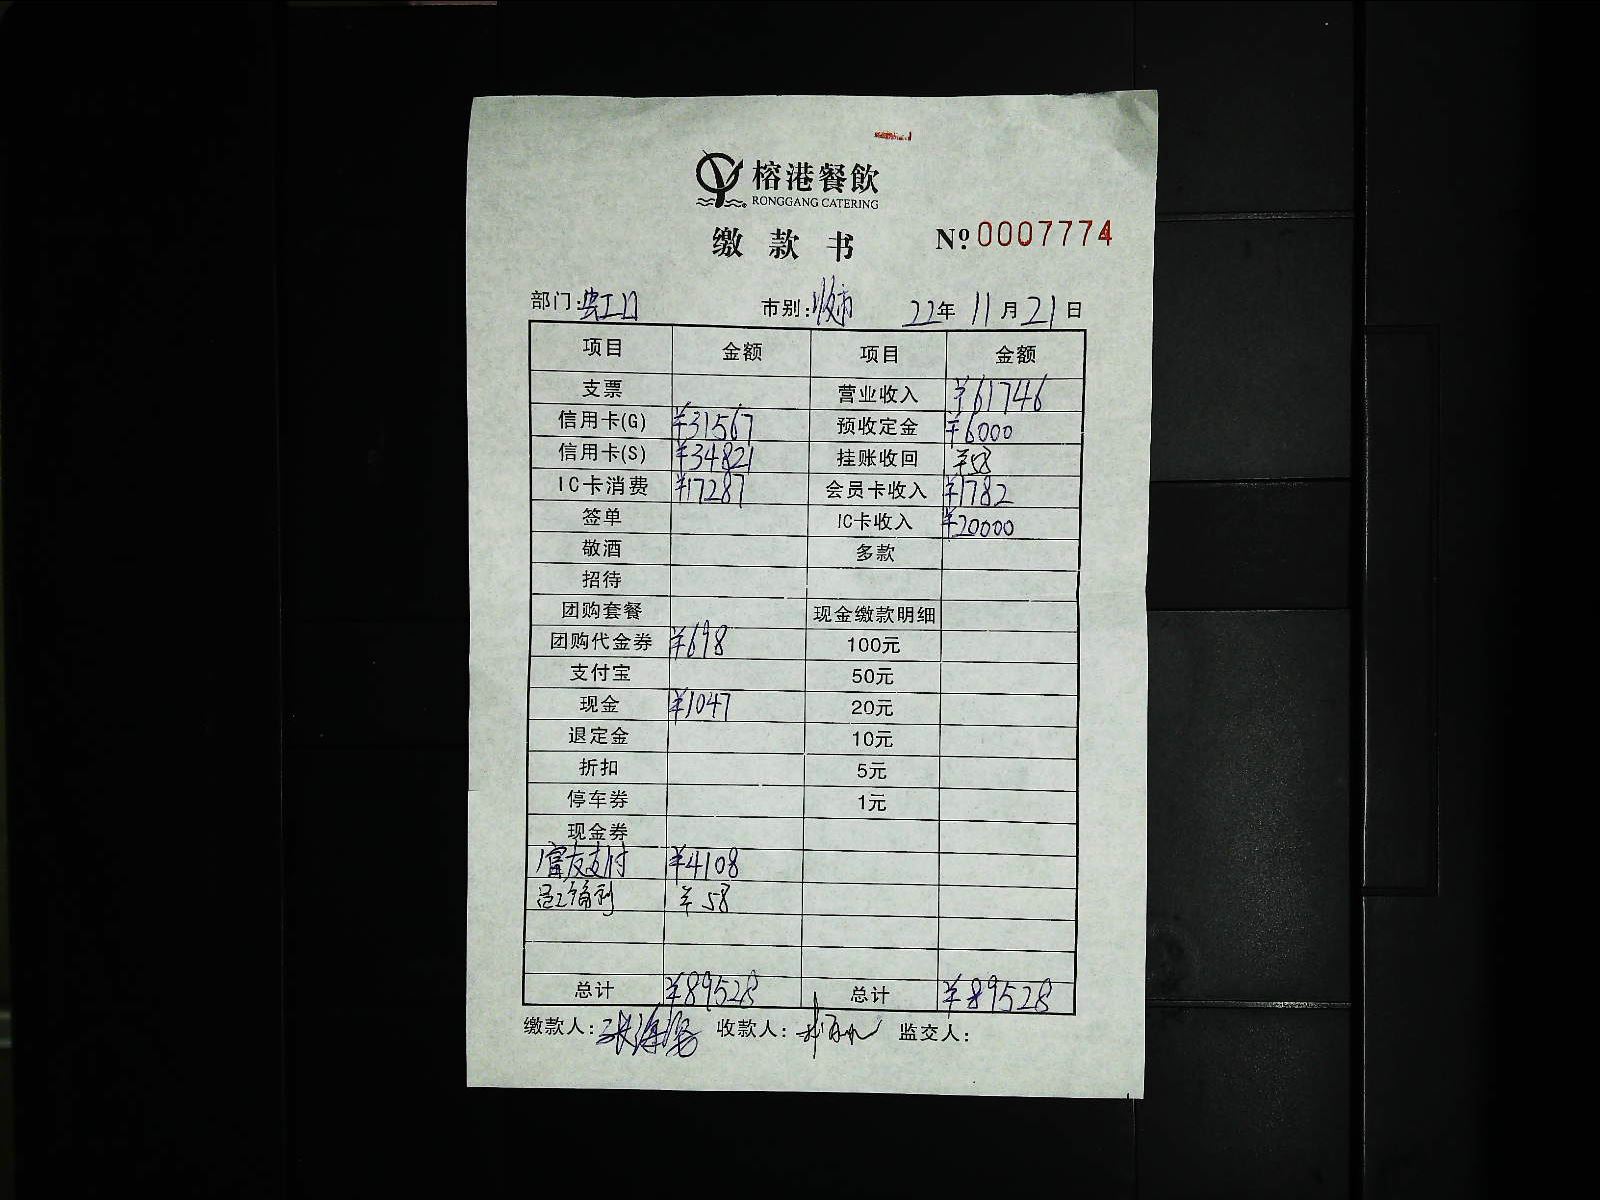 榕港餐飲
RONGGANG CATERING
缴款书 Nº 0007774
部门:虹口 市别:收市 22年 11月 21日
项目 金额 项目 金额
支票 营业收入 ¥61746
信用卡(G) ¥31567 预收定金 ¥6000
信用卡(S) ¥34821 挂账收回 ¥58
IC卡消费 ¥17287 会员卡收入 ¥1782
签单 IC卡收入 ¥20000
敬酒 多款
招待
团购套餐 现金缴款明细
团购代金券 ¥698 100元
支付宝 50元
现金 ¥1047 20元
退定金 10元
折扣 5元
停车券 1元
现金券
富友支付 ¥4108
员工福利 ¥58
总计 ¥89528 总计 ¥89528
缴款人: 收款人: 监交人: